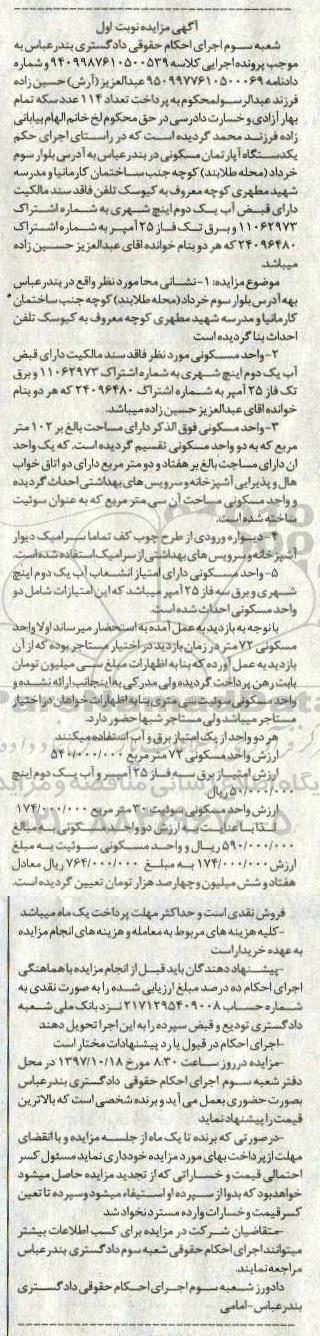 آگهی مزایده نوبت اول
شعبه سوم اجرای احکام حقوقی دادگستری بندرعباس به
موجب پرونده اجرایی کلاسه ۹۴۰۹۹۸۷۶۱۰۵۰۰۵۳۹ و شماره
دادنامه ۹۵۰۹۹۷۷۶۱۰۵۰۰۰۶۹ عبدالعزیز (آرش) حسین زاده
فرزند عبدالرسول محکوم به پرداخت تعداد ۱۱۴ عدد سکه تمام
بهار آزادی و خسارت دادرسی در حق محکوم لخ خانم الهام بیابانی
زاده فرزند محمد گردیده است که در راستای اجرای حکم
یکدستگاه آپارتمان مسکونی در بندرعباس به آدرس بلوار سوم
خرداد (محله طلابند) کوچه جنب ساختمان کارمانیا و مدرسه
شهید مطهری کوچه معروف به کیوسک تلفن فاقد سند مالکیت
دارای قبض آب یک دوم اینچ شهری به شماره اشتراک
۱۱۰۶۲۹۷۳ و برق تک فاز ۲۵ آمپر به شماره اشتراک
۲۴۰۹۶۴۸۰ که هر دو بنام خوانده اقای عبدالعزیز حسین زاده
میباشد.
موضوع مزایده: ۱-نشانی محا مورد نظر واقع در بندرعباس
بهه آدرس بلوار سوم خرداد (محله طلابند) کوچه جنب ساختمان
کارمانیا و مدرسه شهید مطهری کوچه معروف به کیوسک تلفن
احداث بنا گردیده است
۲-واحد مسکونی مورد نظر فاقد سند مالکیت دارای قبض
آب یک دوم اینچ شهری به شماره اشتراک ۱۱۰۶۲۹۷۳ و برق
تک فاز ۲۵ آمپر به شماره اشتراک ۲۴۰۹۶۴۸۰ که هر دو بنام
خوانده اقای عبدالعزیز حسین زاده میباشد.
۳-واحد مسکونی فوق الذکر دارای مساحت بالغ بر ۱۰۲ متر
مربع که به دو واحد مسکونی تقسیم گردیده است. که یک واحد
ان دارای مساحت بالغ بر هفتاد و دو متر مربع دارای دو اتاق خواب
هال و پذیرایی آشپزخانه و سرویس های بهداشتی احداث گردیده
و واحد مسکونی مساحت آن سی متر مربع که به عنوان سوئیت
ساخته شده است.
۴-دیواره ورودی از طرح چوب کف تماما سرامیک دیوار
آشپزخانه و سرویس های بهداشتی از سرامیک استفاده شده است.
۵-واحد مسکونی دارای امتیاز انشعاب آب یک دوم اینچ
شهری و برق سه فاز ۲۵ آمپر میباشد که این امتیازات شامل دو
واحد مسکونی احداث شده است.
با توجه به بازدید به عمل آمده به استحضار میرساند اولا واحد
مسکونی ۷۲ متر در زمان بازدید در اختیار مستاجر بوده که از آن
بازدید به عمل آورده که بنا به اظهارات مبلغ سی میلیون تومان
بابت رهن پرداخت گردیده ولی مدرکی به اینجانب ارائه نشده و
واحد مسکونی سوئیت سی متری بنا به اظهارات خواهان در اختیار
مستاجر میباشد ولی مستاجر شبها حضور دارد.
هر دو واحد از یک امتیاز برق و آب استفاده میکنند
ارزش واحد مسکونی ۷۲ متر مربع ۵۴۰/۰۰۰/۰۰۰
ارزش امتیاز برق سه فاز ۲۵ آمپیر و آب یک دوم اینچ
۵۰/۰۰۰/۰۰۰ ریال
ارزش واحد مسکونی سوئیت ۳۰ متر مربع ۱۷۴/۰۰۰/۰۰۰
لذا با عنایت به ارزش دو واحد مسکونی به مبالغ
۵۹۰/۰۰۰/۰۰۰ ریال و واحد مسکونی سوئیت به مبلغ
ارزش ۱۷۴/۰۰۰/۰۰۰ به مبلغ ۷۶۴/۰۰۰/۰۰۰ ریال معادل
هفتاد و شش میلیون و چهارصد هزار تومان تعیین گردیده است.
فروش نقدی است و حداکثر مهلت پرداخت یک ماه میباشد
-کلیه هزینه های مربوط به معامله و هزینه های انجام مزایده
به عهده خریدار است
-پیشنهاد دهندگان باید قبل از انجام مزایده با هماهنگی
اجرای احکام ده درصد مبلغ ارزیابی شده را به صورت نقدی به
شماره حساب ۲۱۷۱۲۹۵۴۰۹۰۰۸ نزد بانک ملی شعبه
دادگستری تودیع و قبض سپرده را به این اجرا تحویل دهند
-اجرای احکام در قبول یا رد پیشنهادات مختار است
-مزایده در روز ساعت ۸:۳۰ مورخ ۱۳۹۷/۱۰/۱۸ در محل
دفتر شعبه سوم اجرای احکام حقوقی دادگستری بندرعباس
بصورت حضوری بعمل می آید و برنده شخصی است که بالاترین
قیمت را پیشنهاد نماید
-در صورتی که برنده تا یک ماه از جلسه مزایده و با انقضای
مهلت از پرداخت بهای مورد مزایده خودداری نماید مسئول کسر
احتمالی قیمت و خساراتی که از تجدید مزایده حاصل میشود
خواهد بود که بدوا از سپرده او استیفاء میشود و سپرده تا تعین
کسر قیمت و خسارات وارده مسترد نخواد شد
-متقاضیان شرکت در مزایده برای کسب اطلاعات بیشتر
میتوانند اجرای احکام حقوقی شعبه سوم دادگستری بندرعباس
مراجعه نمایند.
دادورز شعبه سوم اجرای احکام حقوقی دادگستری
بندرعباس-امامی